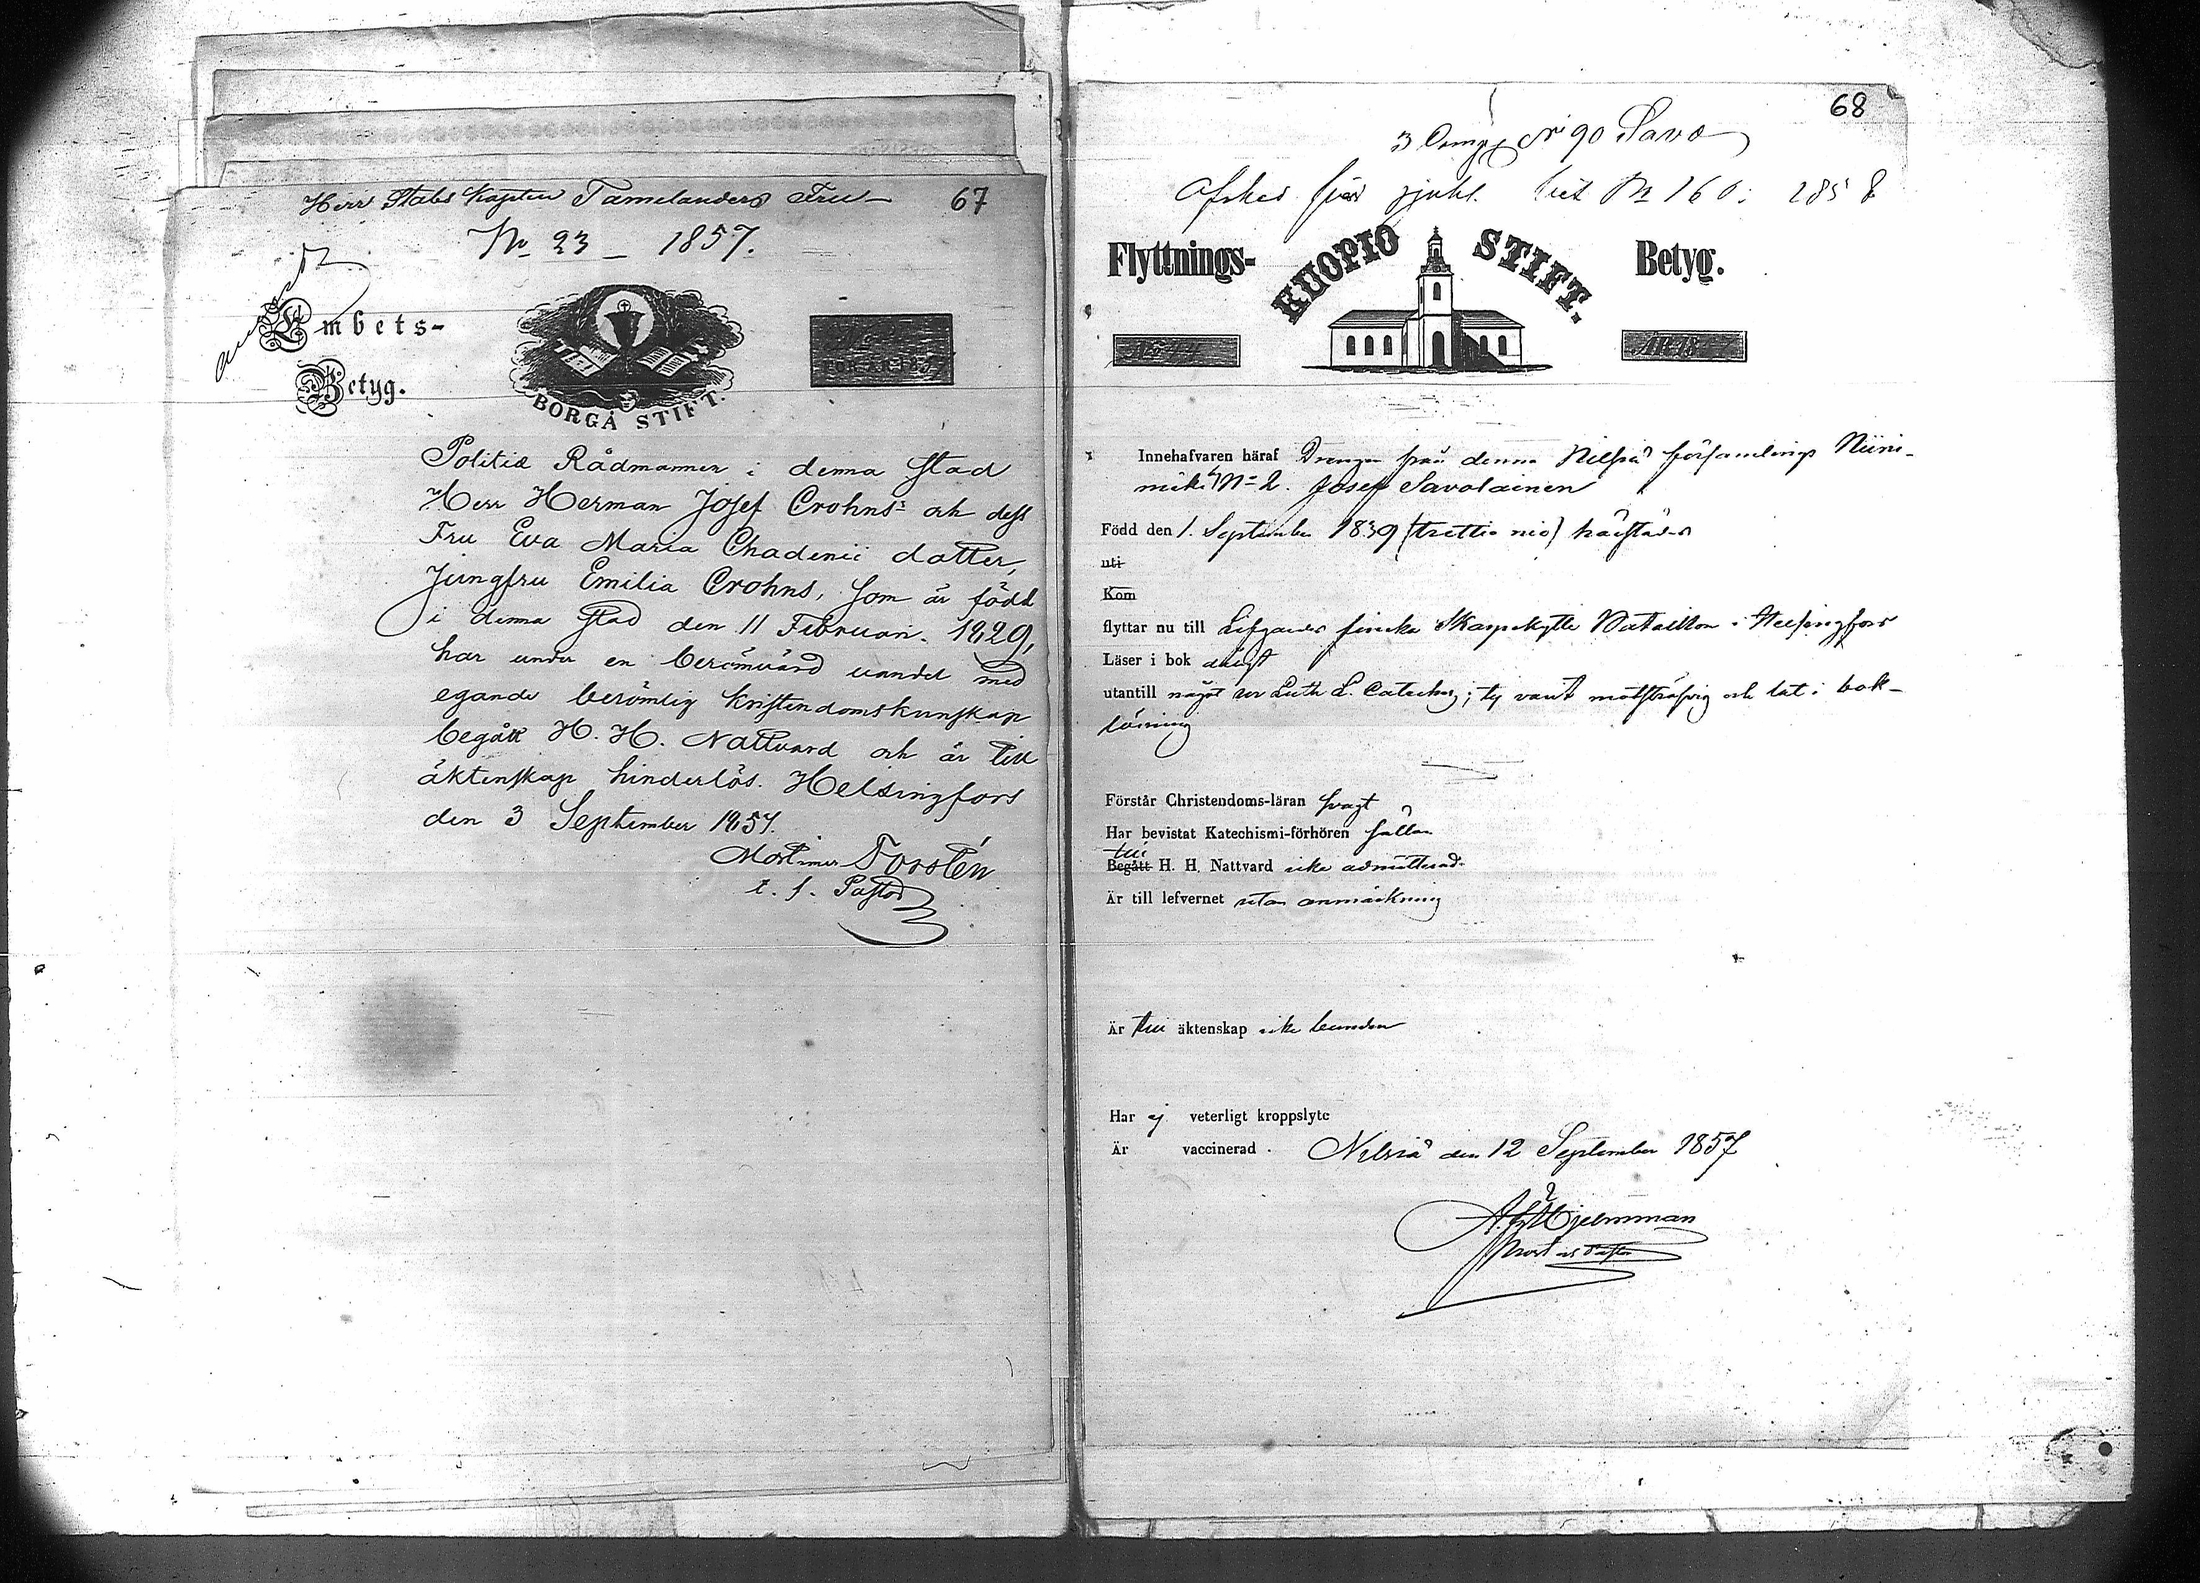 Herr Stabs Kapten Tamelanders Fru
67
No 23 – 1857.
Embets-
Betyg.
BORGÅ STIFT.
FÖR ÅR 1857
Politie Rådmannen i denna stad
Herr Herman Josef Crohns och dess
Fru Eva Maria Chadenii dotter,
Jungfru Emilia Crohns, som är född
i denna stad den 11 Februari 1829,
har under en berömvärd vandel med
egande berömlig kristendomskunskap
begått H. H. Nattvard och är till
äktenskap hinderlös. Helsingfors
den 3 September 1857.
Mortimer Forstén
t. f. Pastor
68
3 Comp No 90 Savo
No 160: 1858
Flyttnings-
KUOPIO STIFT.
Betyg.
No 44
ÅR 1857
Innehafvaren häraf Drengen från denna Nilsiä församlings Niini-
mäki No 2. Josef Savolainen
Född den 1. September 1839 (trettio nio) härstädes
uti
Kom
flyttar nu till Lifgardes finska Skarpskytte Bataillon i Helsingfors
Läser i bok dåligt
utantill något ur Luth. L. Cateches; ty varit motsträfvig och lat i bok-
läsning
Förstår Christendoms-läran svagt
Har bevistat Katechismi-förhören sällan
till
Begått H. H. Nattvard icke admitterad
Är till lefvernet utan anmärkning
Är till äktenskap icke bunden
Har ej veterligt kroppslyte
Är vaccinerad.
Nilsiä den 12 September 1857
Hjelmman
Prost och Pastor